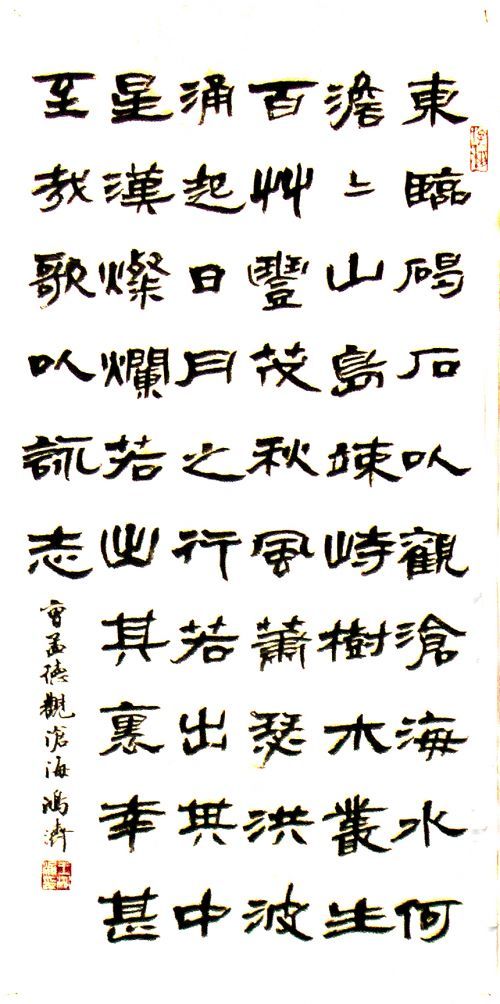 東臨碣石以觀滄海水何
澹〻山島竦峙樹木叢生
百艸豐茂秋風蕭瑟洪波
涌起日月之行若出其中
星漢燦爛若出其裏幸甚
至哉歌以詠志
曹孟德觀滄海鴻濟